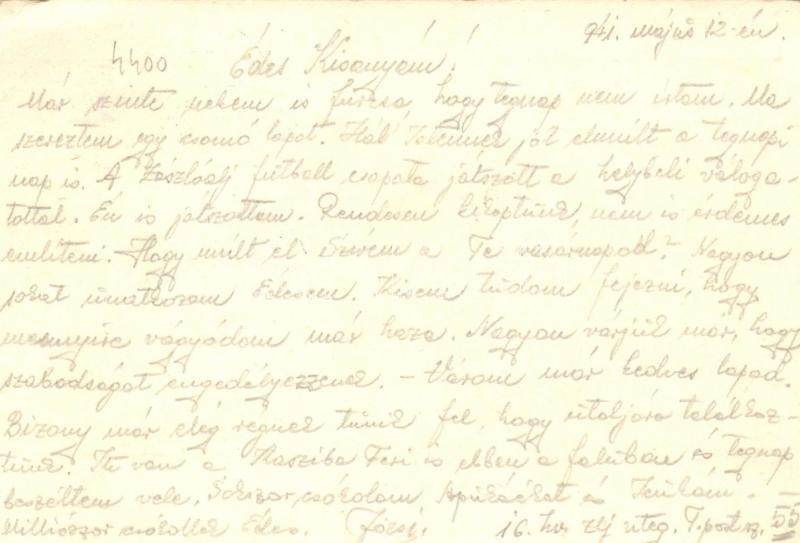 941. május 12-én.
4400 Édes Kisanyám!
Már szinte nekem is furcsa, hogy tegnap nem írtam. Ma
szereztem egy csomó lapot. Hál' Istennek jól elmúlt a tegnapi
nap is. A Zászlóalj futball csapata játszott a helybeli váloga-
tottal. Én is játszottam. Rendesen kikaptunk, nem is érdemes
említeni. Hogy múlt el Szívem a Te vasárnapod? Nagyon
sokat únatkozom Édesem. Kisem tudom fejezni, hogy
mennyire vágyódom már haza. Nagyon várjuk már, hogy
szabadságot engedélyezzenek. – Várom már kedves lapod.
Bizony már elég régnek tűnik fel, hogy utoljára találkoz-
tunk. Itt van a Feri is ebben a faluban és tegnap
beszéltem vele. Sokszor csókolom Apukáékat és Icukám. –
Milliószor csókollak Édes. Józsi. 16. hv. zlj üteg. T. post sz. 55